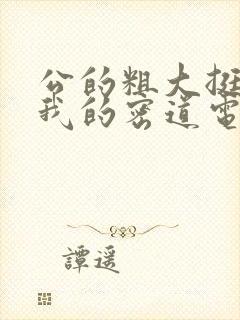 公的粗大挺
我的密道电
譚遥